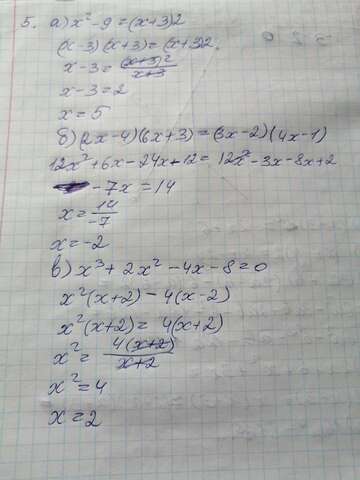 5. а) x² - 9 = (x+3)2
(x-3)(x+3) = (x+3)2
x-3 = (x+3)2/x+3
x-3 = 2
x = 5
б) (2x-4)(6x+3) = (3x-2)(4x-1)
12x² + 6x - 24x - 12 = 12x² - 3x - 8x + 2
-7x = 14
x = 14/-7
x = -2
в) x³ + 2x² - 4x - 8 = 0
x²(x+2) - 4(x-2)
x²(x+2) = 4(x+2)
x² = 4(x+2)/x+2
x² = 4
x = 2